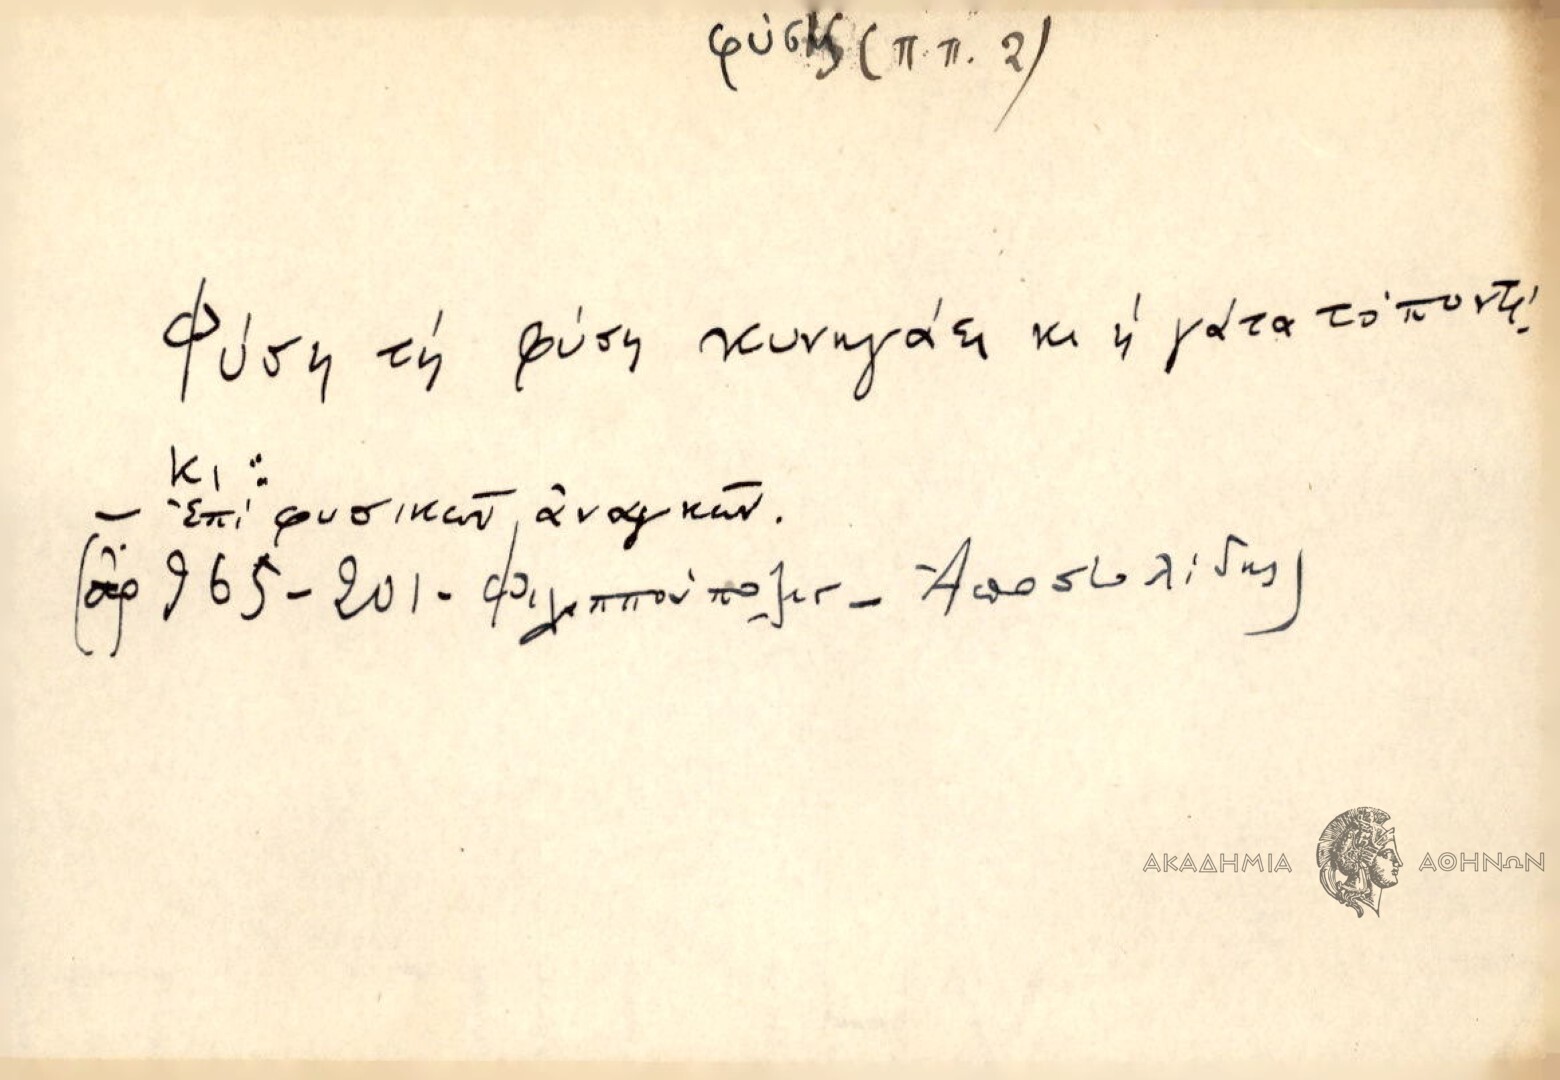 φύσις (π.π. 2)
Φύση τή φύση κυνηγάει κι ἡ γάτα τό ποντί-
κι :
– Ἐπί φυσικῶν ἀναγκῶν.
(ἀρ 965-201- Φιλιππούπολις – Ἀποστολίδης)
ΑΚΑΔΗΜΙΑ ΑΘΗΝΩΝ